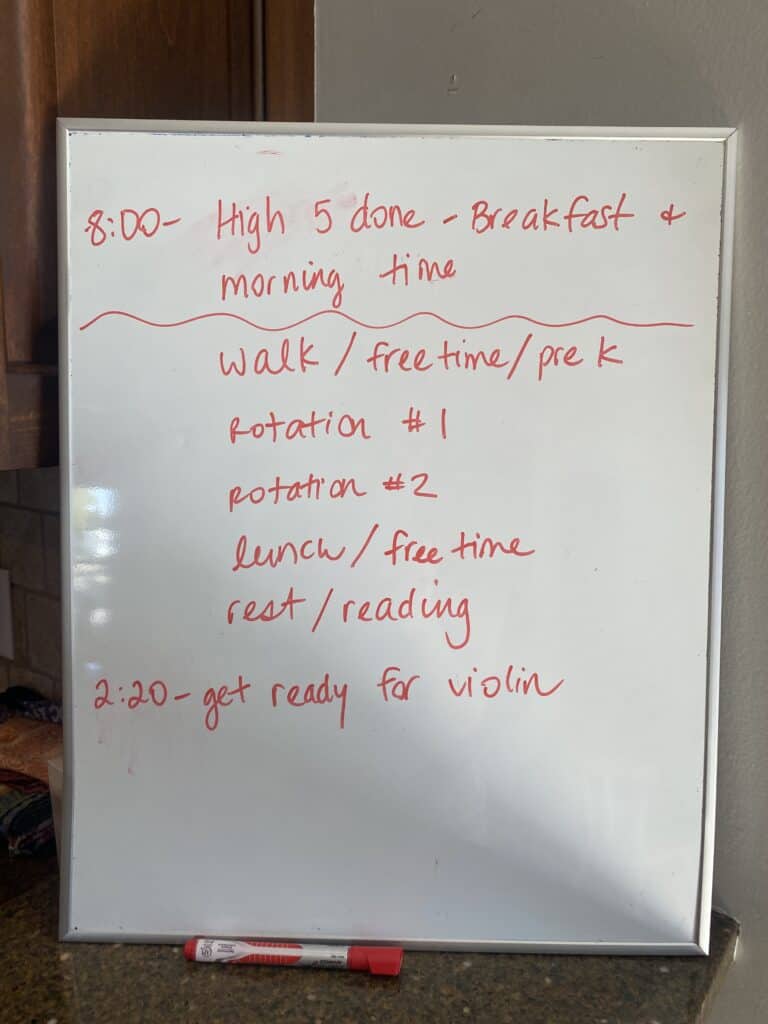 8:00- High 5 done - Breakfast &
morning time
walk / free time / pre k
Rotation #1
Rotation #2
lunch / free time
rest / reading
2:20 - get ready for violin